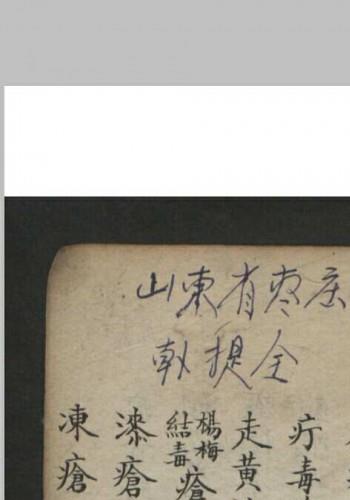 山東省枣庄
提全
疔毒
走黄
楊梅
結毒
瘡
漆瘡
凍瘡